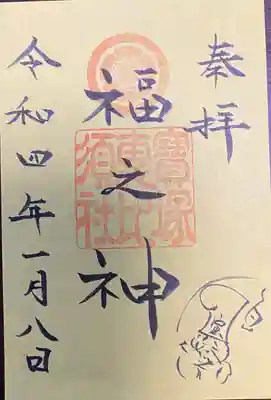 奉拝
福之神
寶塚
恵比
須社
令和四年一月八日